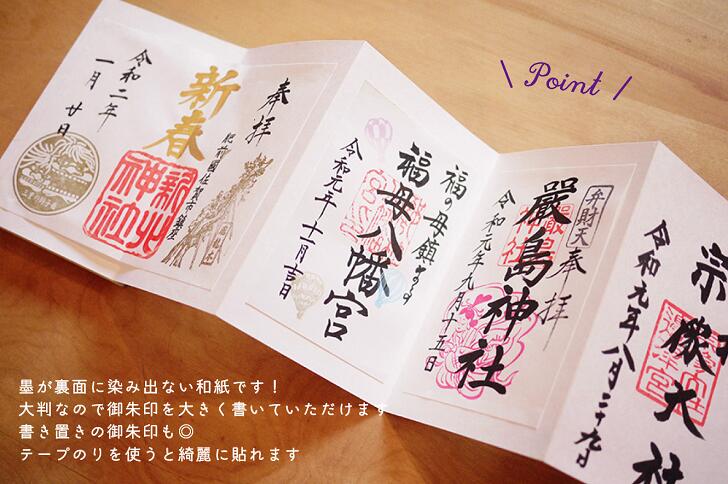 \ Point /
奉拝
新春
令和二年
一月廿日
肥前國佐賀市鎮座
福の母鎮ます
福母八幡宮
令和元年十一月吉日
弁財天
奉拝
嚴島神社
令和元年九月十五日
宗像大社
令和元年八月三十九日
墨が裏面に染み出ない和紙です！
大判なので御朱印を大きく書いていただけます
書き置きの御朱印も◎
テープのりを使うと綺麗に貼れます